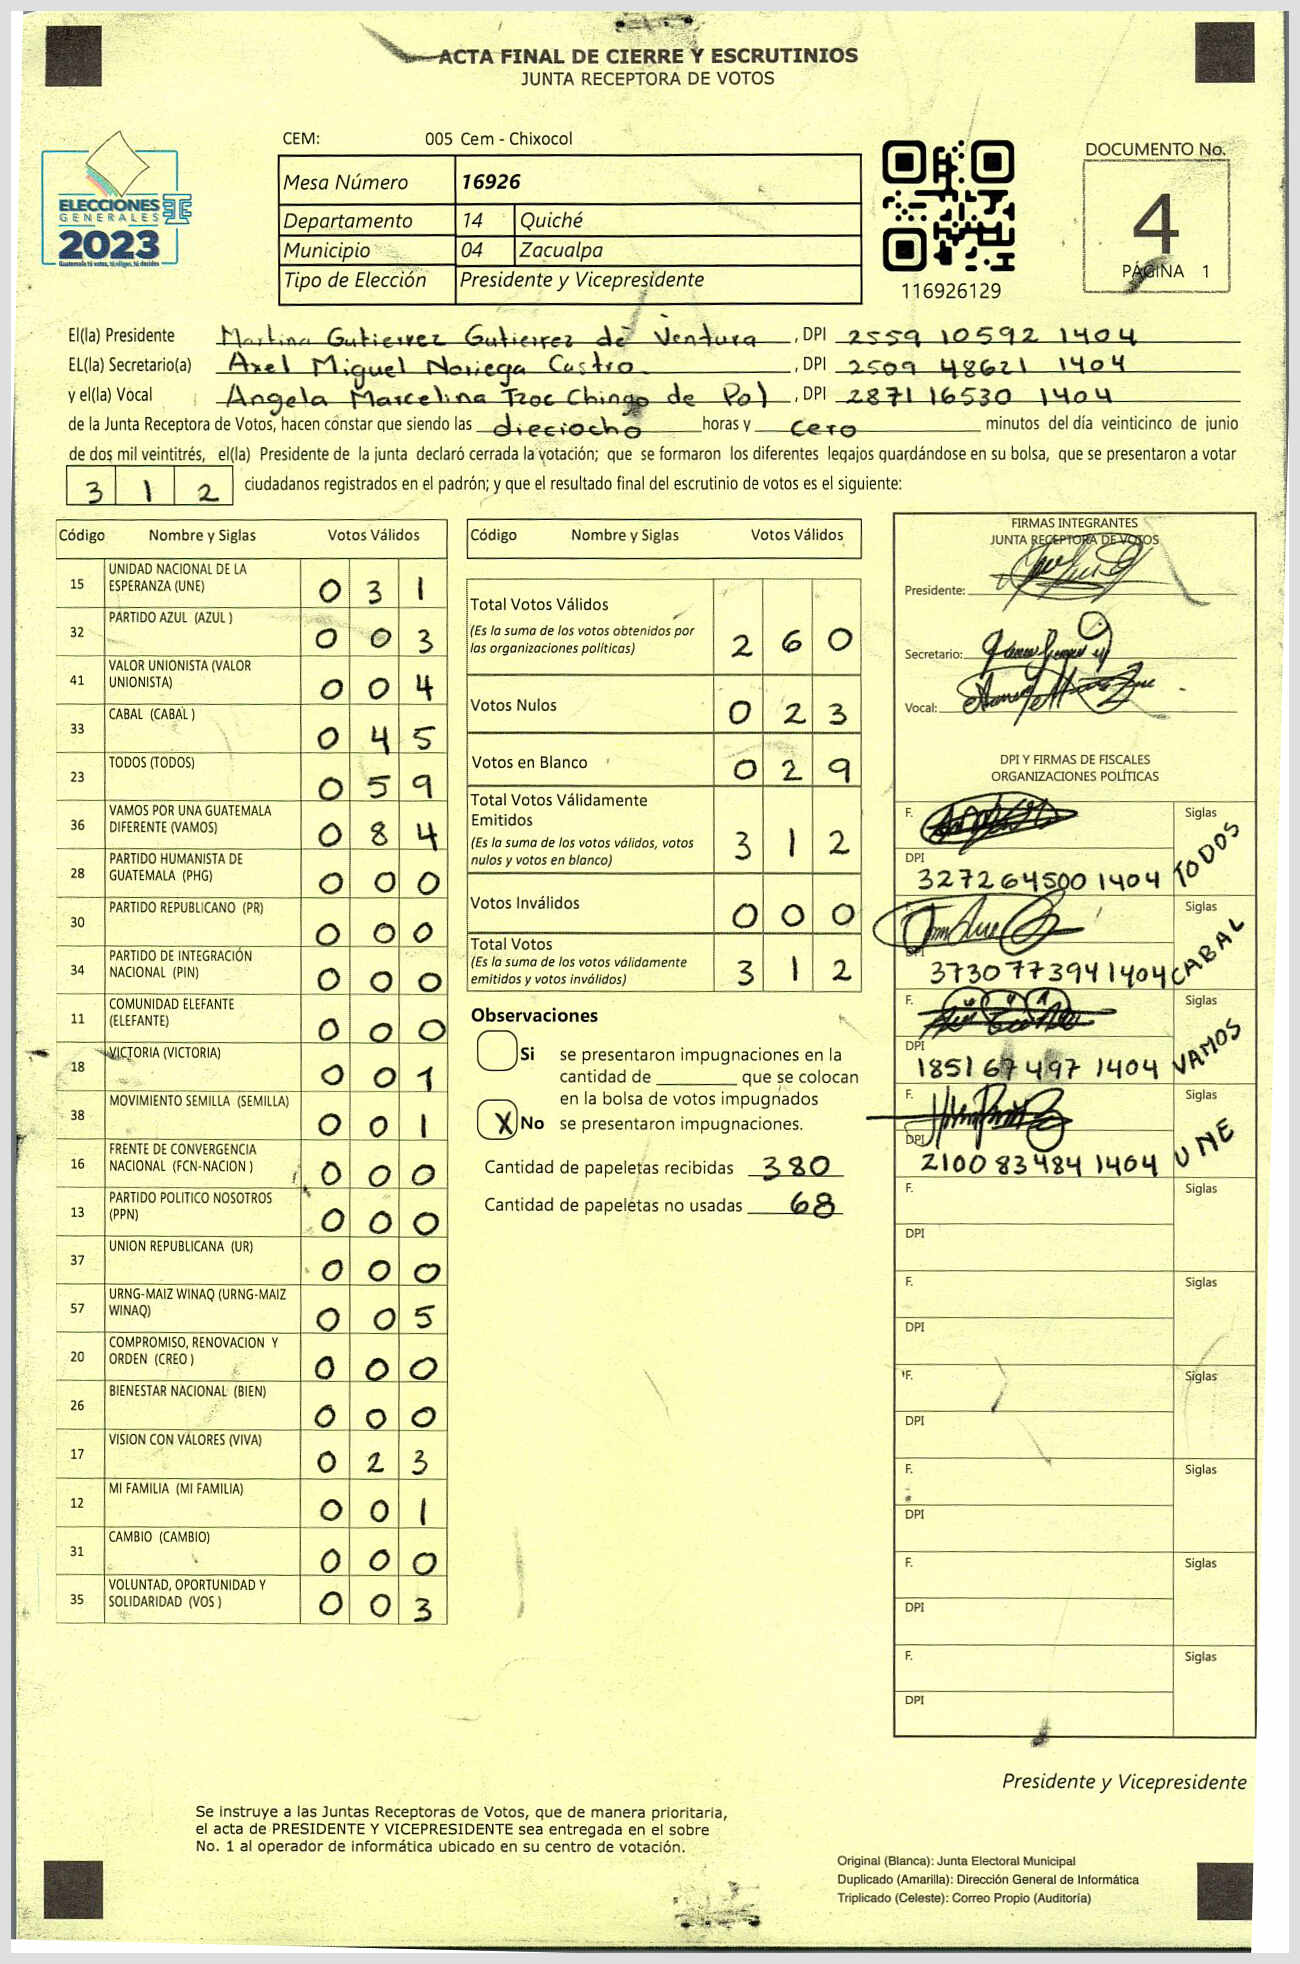 ACTA FINAL DE CIERRE Y ESCRUTINIOS
JUNTA RECEPTORA DE VOTOS
CEM: 005 Cem - Chixocol
ELECCIONES
GENERALES
2023
Guatemala tú votas, tú eliges, tú decides
Mesa Número 16926
Departamento 14 Quiché
Municipio 04 Zacualpa
Tipo de Elección Presidente y Vicepresidente
116926129
DOCUMENTO No.
4
PÁGINA 1
El(la) Presidente Martina Gutierrez Gutierrez de Ventura, DPI 2559 10592 1404
EL(la) Secretario(a) Axel Miguel Noriega Castro, DPI 2509 48621 1404
y el(la) Vocal Angela Marcelina Tzoc Chingo de Pol, DPI 2871 16530 1404
de la Junta Receptora de Votos, hacen constar que siendo las dieciocho horas y cero minutos del día veinticinco de junio
de dos mil veintitrés, el(la) Presidente de la junta declaró cerrada la votación; que se formaron los diferentes legajos guardándose en su bolsa, que se presentaron a votar
3 1 2 ciudadanos registrados en el padrón; y que el resultado final del escrutinio de votos es el siguiente:
Código Nombre y Siglas Votos Válidos
15 UNIDAD NACIONAL DE LA ESPERANZA (UNE) 0 3 1
32 PARTIDO AZUL (AZUL ) 0 0 3
41 VALOR UNIONISTA (VALOR UNIONISTA) 0 0 4
33 CABAL (CABAL ) 0 4 5
23 TODOS (TODOS) 0 5 9
36 VAMOS POR UNA GUATEMALA DIFERENTE (VAMOS) 0 8 4
28 PARTIDO HUMANISTA DE GUATEMALA (PHG) 0 0 0
30 PARTIDO REPUBLICANO (PR) 0 0 0
34 PARTIDO DE INTEGRACIÓN NACIONAL (PIN) 0 0 0
11 COMUNIDAD ELEFANTE (ELEFANTE) 0 0 0
18 VICTORIA (VICTORIA) 0 0 1
38 MOVIMIENTO SEMILLA (SEMILLA) 0 0 1
16 FRENTE DE CONVERGENCIA NACIONAL (FCN-NACION ) 0 0 0
13 PARTIDO POLITICO NOSOTROS (PPN) 0 0 0
37 UNION REPUBLICANA (UR) 0 0 0
57 URNG-MAIZ WINAQ (URNG-MAIZ WINAQ) 0 0 5
20 COMPROMISO, RENOVACION Y ORDEN (CREO ) 0 0 0
26 BIENESTAR NACIONAL (BIEN) 0 0 0
17 VISION CON VALORES (VIVA) 0 2 3
12 MI FAMILIA (MI FAMILIA) 0 0 1
31 CAMBIO (CAMBIO) 0 0 0
35 VOLUNTAD, OPORTUNIDAD Y SOLIDARIDAD (VOS ) 0 0 3
Código Nombre y Siglas Votos Válidos
Total Votos Válidos
(Es la suma de los votos obtenidos por
las organizaciones políticas) 2 6 0
Votos Nulos 0 2 3
Votos en Blanco 0 2 9
Total Votos Válidamente
Emitidos
(Es la suma de los votos válidos, votos
nulos y votos en blanco) 3 1 2
Votos Inválidos 0 0 0
Total Votos
(Es la suma de los votos válidamente
emitidos y votos inválidos) 3 1 2
Observaciones
Si se presentaron impugnaciones en la
cantidad de ________ que se colocan
en la bolsa de votos impugnados
X No se presentaron impugnaciones.
Cantidad de papeletas recibidas 380
Cantidad de papeletas no usadas 68
FIRMAS INTEGRANTES
JUNTA RECEPTORA DE VOTOS
Presidente:
Secretario:
Vocal:
DPI Y FIRMAS DE FISCALES
ORGANIZACIONES POLÍTICAS
F. Siglas
DPI 3272645001404 TODOS
F. Siglas
DPI 3730773941404 CABAL
F. Siglas
DPI 1851 67497 1404 VAMOS
F. Siglas
DPI 2100 83484 1404 UNE
F. Siglas
DPI
F. Siglas
DPI
F. Siglas
DPI
F. Siglas
DPI
F. Siglas
DPI
F. Siglas
DPI
Presidente y Vicepresidente
Se instruye a las Juntas Receptoras de Votos, que de manera prioritaria,
el acta de PRESIDENTE Y VICEPRESIDENTE sea entregada en el sobre
No. 1 al operador de informática ubicado en su centro de votación.
Original (Blanca): Junta Electoral Municipal
Duplicado (Amarilla): Dirección General de Informática
Triplicado (Celeste): Correo Propio (Auditoría)